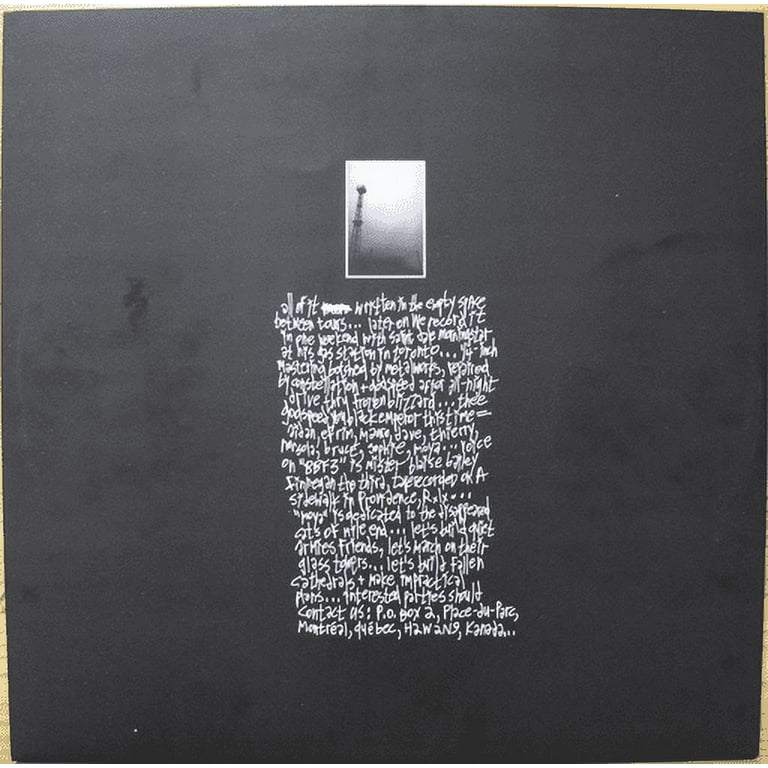 all of it written in the empty space
between tours... later on we record it
in one weekend with saint dale morningstar
at his gas station in toronto... 12-inch
mastering botched by metalworks, repaired
by constellation + godspeed after all-night
drive thru frozen blizzard... thee
godspeed you black emperor this time =
aidan, efrim, mauro, dave, thierry,
norsola, bruce, sophie, moya... voice
on "BBF3" is mister blaise bailey
finnegan the third, tape recorded on A
sidewalk in Providence, R.I....
"moya" is dedicated to the disappeared
cats of mile end... let's build quiet
armies friends, let's march on their
glass towers... let's build fallen
cathedrals + make impractical
plans... interested parties should
contact us: P.O. Box 2, Place-du-Parc,
Montréal, québec, H2W 2N9, Kanada...